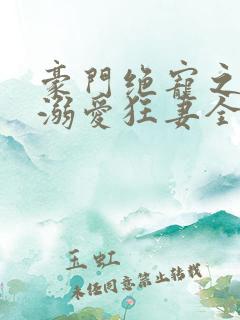 豪門绝寵之
溺愛狂妻全
玉虹
未经同意禁止转载